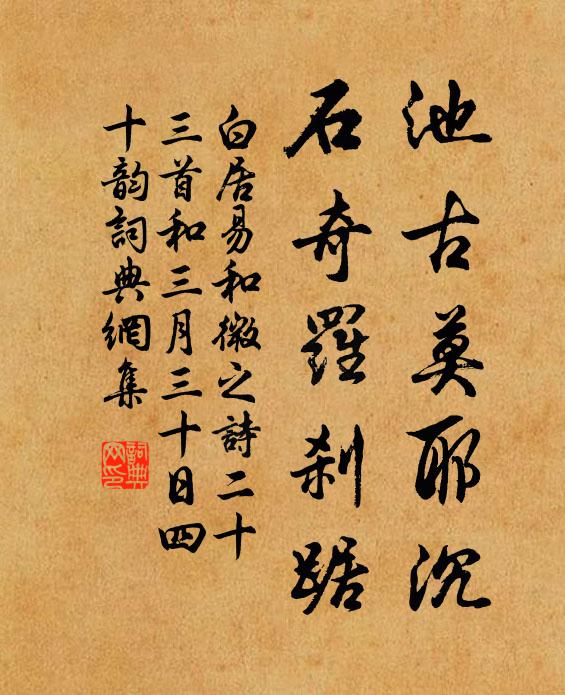 池古莫耶沉
石奇羅刹踞
白居易和微之詩二十
三首和三月三十日四
十韵詞典網集
詞典網印